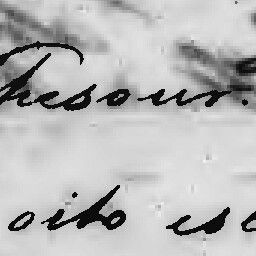 Thesour
oito es